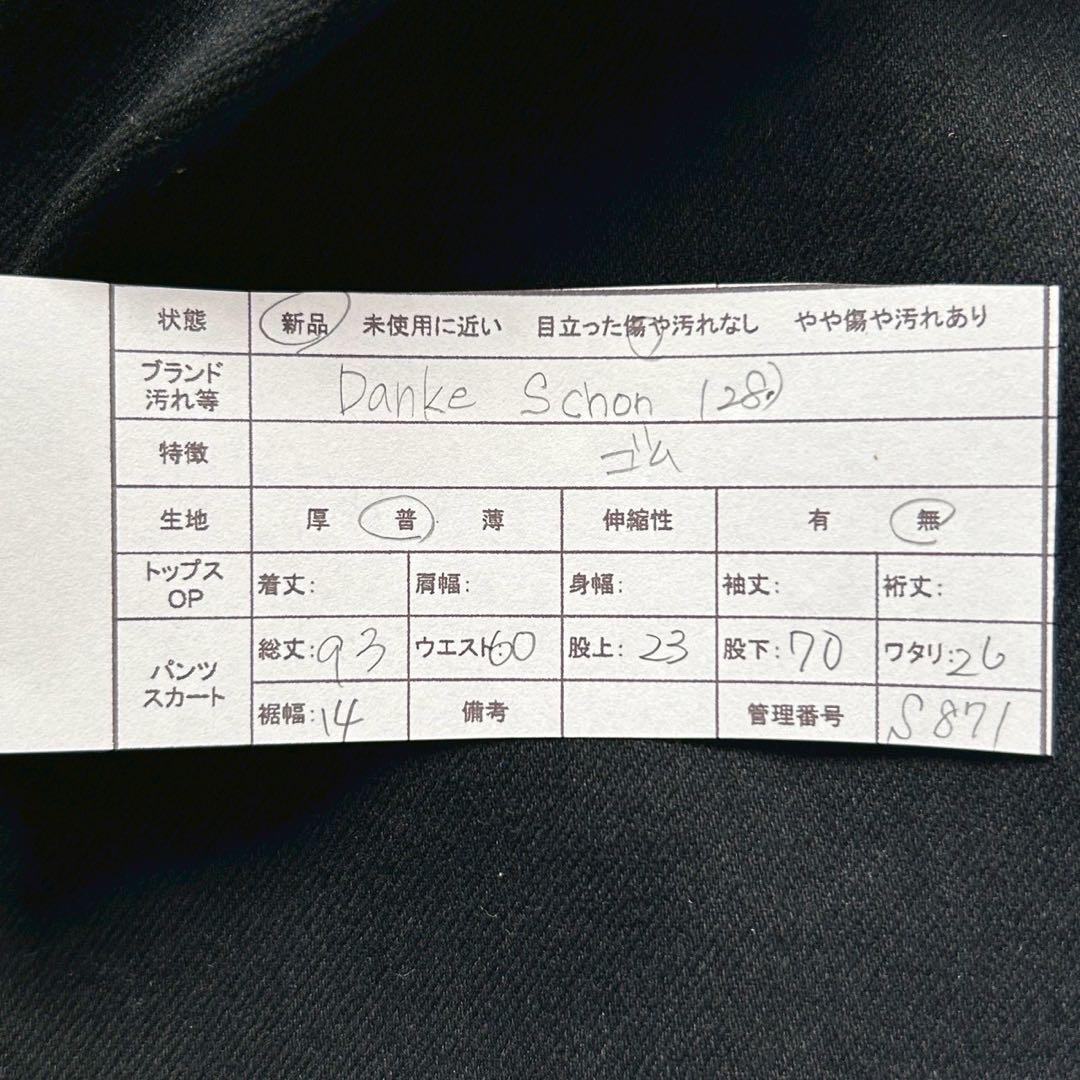 状態 新品 未使用に近い 目立った傷や汚れなし やや傷や汚れあり
ブランド 汚れ等 Danke Schon (28)
特徴 ゴム
生地 厚 普 薄 伸縮性 有 無
トップス OP 着丈: 肩幅: 身幅: 袖丈: 裄丈:
パンツ スカート 総丈:93 ウエスト:60 股上:23 股下:70 ワタリ:26
裾幅:14 備考 管理番号 S871